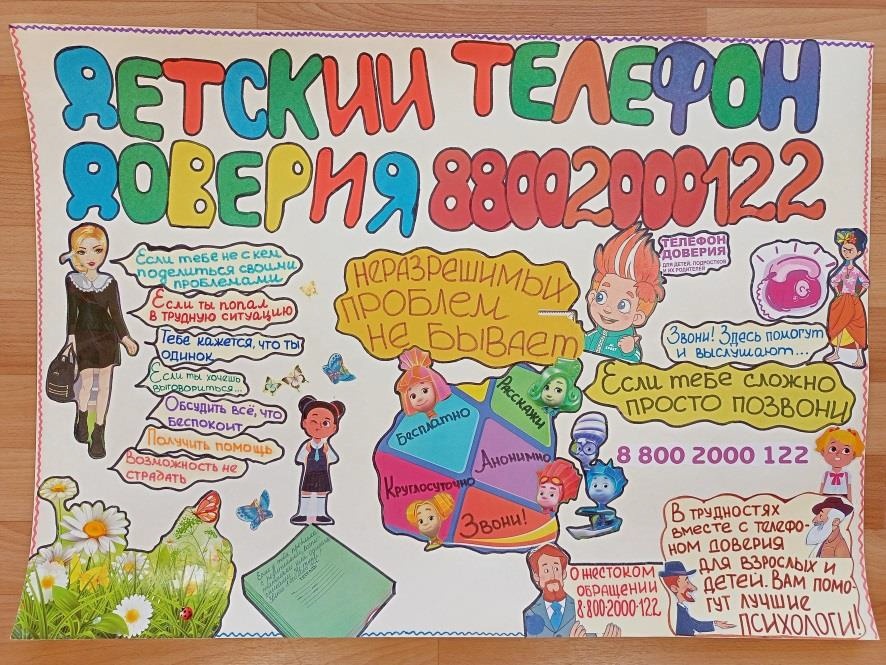 ДЕТСКИЙ ТЕЛЕФОН
ДОВЕРИЯ 88002000122
Если тебе не с кем
поделиться своими
проблемами
Если ты попал
в трудную ситуацию
Тебе кажется, что ты
одинок
Если ты хочешь
выговориться...
Обсудить всё, что
беспокоит
Получить помощь
Возможность не
страдать
НЕРАЗРЕШИМЫХ
ПРОБЛЕМ
НЕ БЫВАЕТ
ТЕЛЕФОН
ДОВЕРИЯ
ДЛЯ ДЕТЕЙ, ПОДРОСТКОВ
И ИХ РОДИТЕЛЕЙ
Звони! Здесь помогут
и выслушают...
Если тебе сложно
просто позвони
Бесплатно
Расскажи
Анонимно
Круглосуточно
Звони!
8 800 2000 122
О жестоком
обращении
8-800-2000-122
В трудностях
вместе с телефо-
ном доверия
для взрослых и
детей. Вам помо-
гут лучшие
психологи!